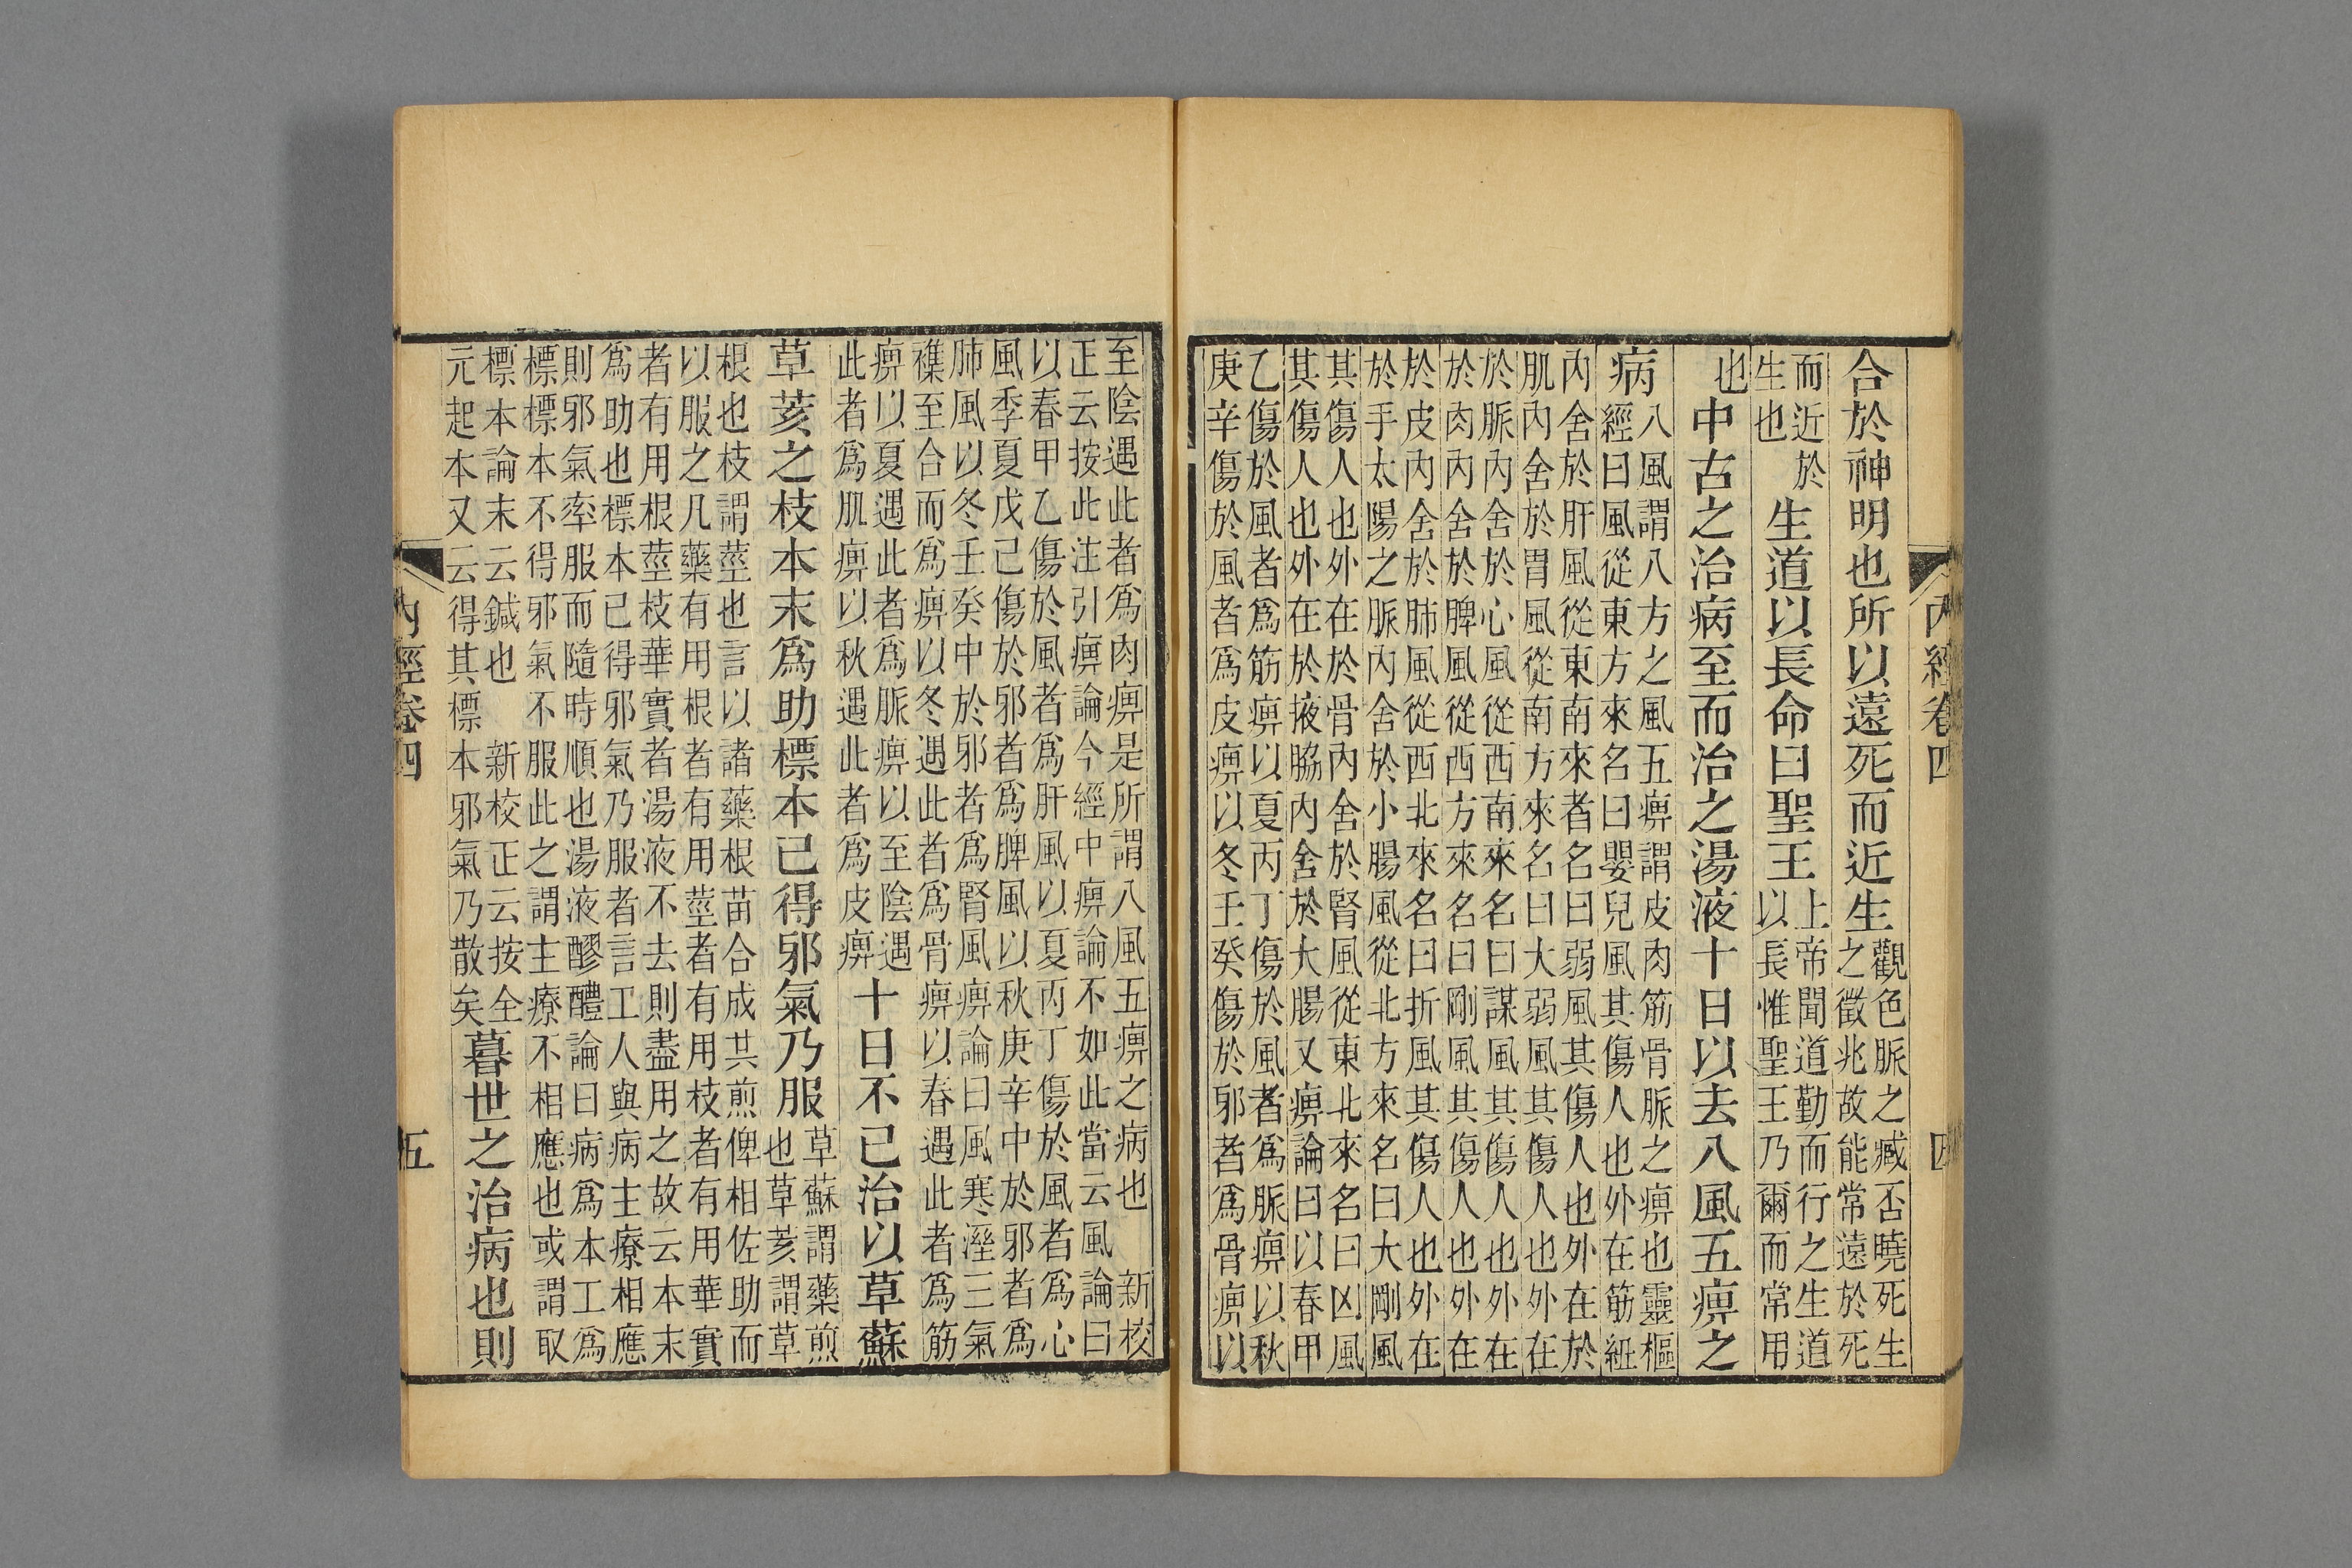 內經卷四　四
合於神明也所以遠死而近生
觀色脈之臧否曉死生
之徵兆故能常遠於死
而近於
生也
生道以長命曰聖王
上帝聞道勤而行之生道
以長惟聖王乃爾而常用
也
中古之治病至而治之湯液十日以去八風五痹之
病
八風謂八方之風五痹謂皮肉筋骨脈之痹也靈樞
經曰風從東方來名曰嬰兒風其傷人也外在筋紐
內舍於肝風從東南來者名曰弱風其傷人也外在於
肌內舍於胃風從南方來名曰大弱風其傷人也外在
於脈內舍於心風從西南來名曰謀風其傷人也外在
於肉內舍於脾風從西方來名曰剛風其傷人也外在
於皮內舍於肺風從西北來名曰折風其傷人也外在
於手太陽之脈內舍於小腸風從北方來名曰大剛風
其傷人也外在於骨內舍於腎風從東北來名曰凶風
其傷人也外在於掖脇內舍於大腸又痹論曰以春甲
乙傷於風者爲筋痹以夏丙丁傷於風者爲脈痹以秋
庚辛傷於風者爲皮痹以冬壬癸傷於邪者爲骨痹以
至陰遇此者爲肉痹是所謂八風五痹之病也　新校
正云按此注引痹論今經中痹論不如此當云風論曰
以春甲乙傷於風者爲肝風以夏丙丁傷於風者爲心
風季夏戊己傷於邪者爲脾風以秋庚辛中於邪者爲
肺風以冬壬癸中於邪者爲腎風痹論曰風寒溼三氣
襍至合而爲痹以冬遇此者爲骨痹以春遇此者爲筋
痹以夏遇此者爲脈痹以至陰遇
此者爲肌痹以秋遇此者爲皮痹
十日不已治以草蘇
草荄之枝本末爲助標本已得邪氣乃服
草蘇謂藥煎
也草荄謂草
根也枝謂莖也言以諸藥根苗合成其煎俾相佐助而
以服之凡藥有用根者有用莖者有用枝者有用華實
者有用根莖枝華實者湯液不去則盡用之故云本末
爲助也標本已得邪氣乃服者言工人與病主療相應
則邪氣率服而隨時順也湯液醪醴論曰病爲本工爲
標標本不得邪氣不服此之謂主療不相應也或謂取
標本論末云鍼也　新校正云按全
元起本又云得其標本邪氣乃散矣
暮世之治病也則
內經卷四　五